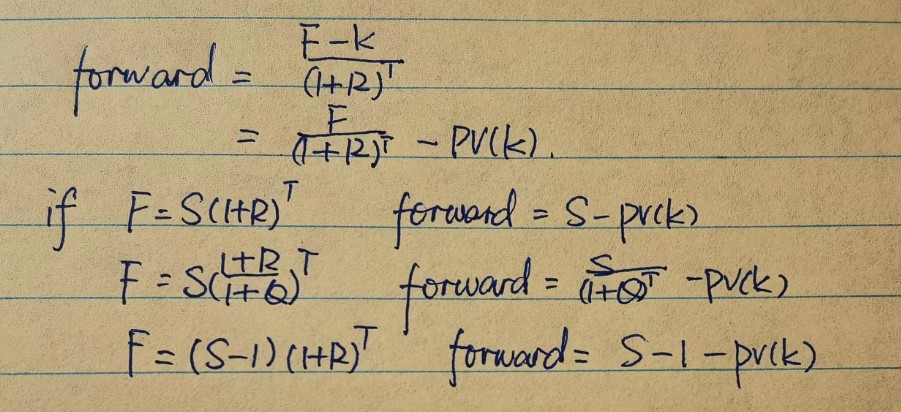 forward = \frac{F-k}{(1+R)^T}
= \frac{F}{(1+R)^T} - PV(k).
if F=S(1+R)^T forward = S-pv(k)
F=S(\frac{1+R}{1+Q})^T forward = \frac{S}{(1+Q)^T} -pv(k)
F=(S-1)(1+R)^T forward= S-1-pv(k)